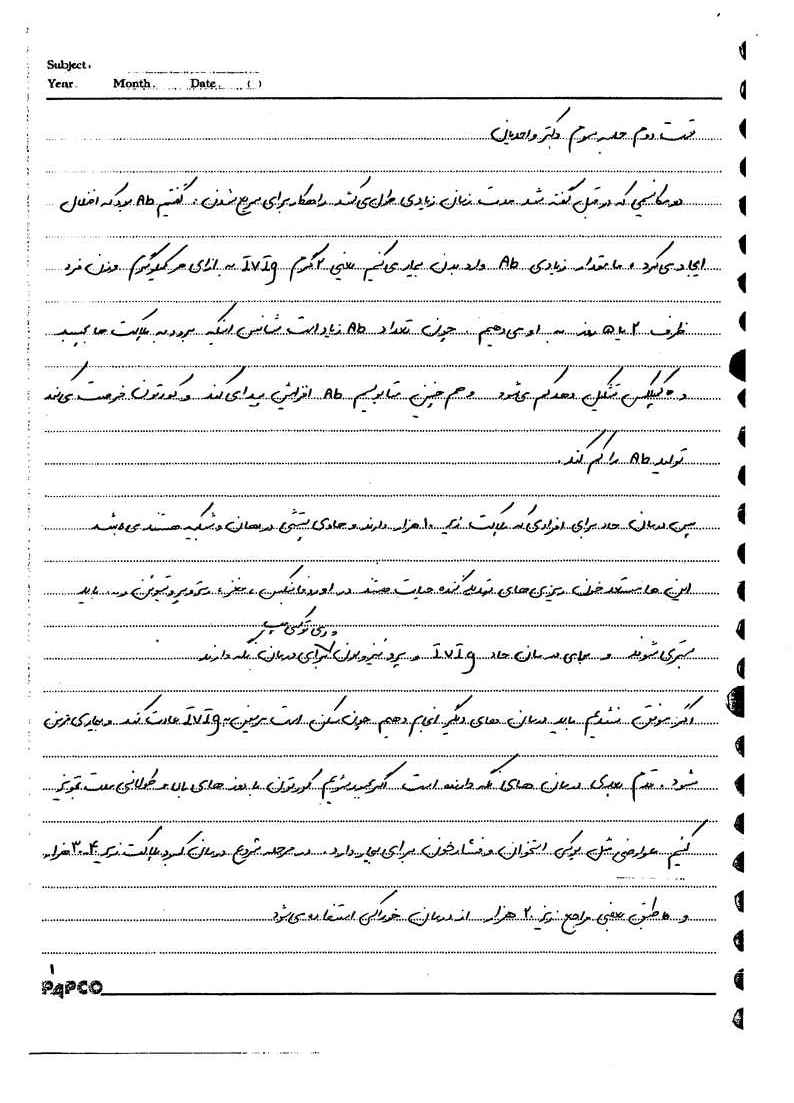 Subject:
Year. Month. Date. ( )
قسمت دوم جلسه سوم دکتر واحدیان
در مکانسیمی که در قبل گفته شد مدت زمان زیادی طول می کشد راهکار برای سریع شدن: گفتیم Ab بود که اختلال
ایجاد می کرد، ما مقدار زیادی Ab وارد بدن بیمار می کنیم یعنی ۲ گرم IVIg به ازای هر کیلوگرم وزن فرد
ظرف ۲ یا ۵ روز به او می دهیم. چون تعداد Ab زیاد است شانس اینکه برود به پلاکت ها بچسبد
و کمپلکس تشکیل دهد کم می شود و هم چنین متابولیسم Ab افزایش پیدا می کند و کورتون فرصت می کند
تولید Ab را کم کند.
پس درمان حاد برای افرادی که پلاکت زیر ۱۰ هزار دارند و حاوی پتشی در دهان و شبکیه هستند می باشد
این ها مستعد خون ریزی های تهدید کننده حیات هستند در مغز، رتروپریتوئن و... باید
بستری شوند و بجای درمان حاد IVIg و پردنیزولون برای درمان نگه دارند
اگر موفق نشدیم باید درمان های دیگر انجام دهیم چون ممکن است مریض به IVIg عادت کند و بیماری مزمن
شود. قدم بعدی درمان های نگه دارنده است اگر مجبور شویم کورتون با دوز های بالا و طولانی مدت تجویز
کنیم عوارضی مثل پوکی استخوان و فشار خون برای بیمار دارد. در مرحله شروع درمان کمبود پلاکت زیر ۳۰-۴۰ هزار
و طبق بعضی مراجع زیر ۲۰ هزار از درمان خوراکی استفاده می شود
۱
PAPCO